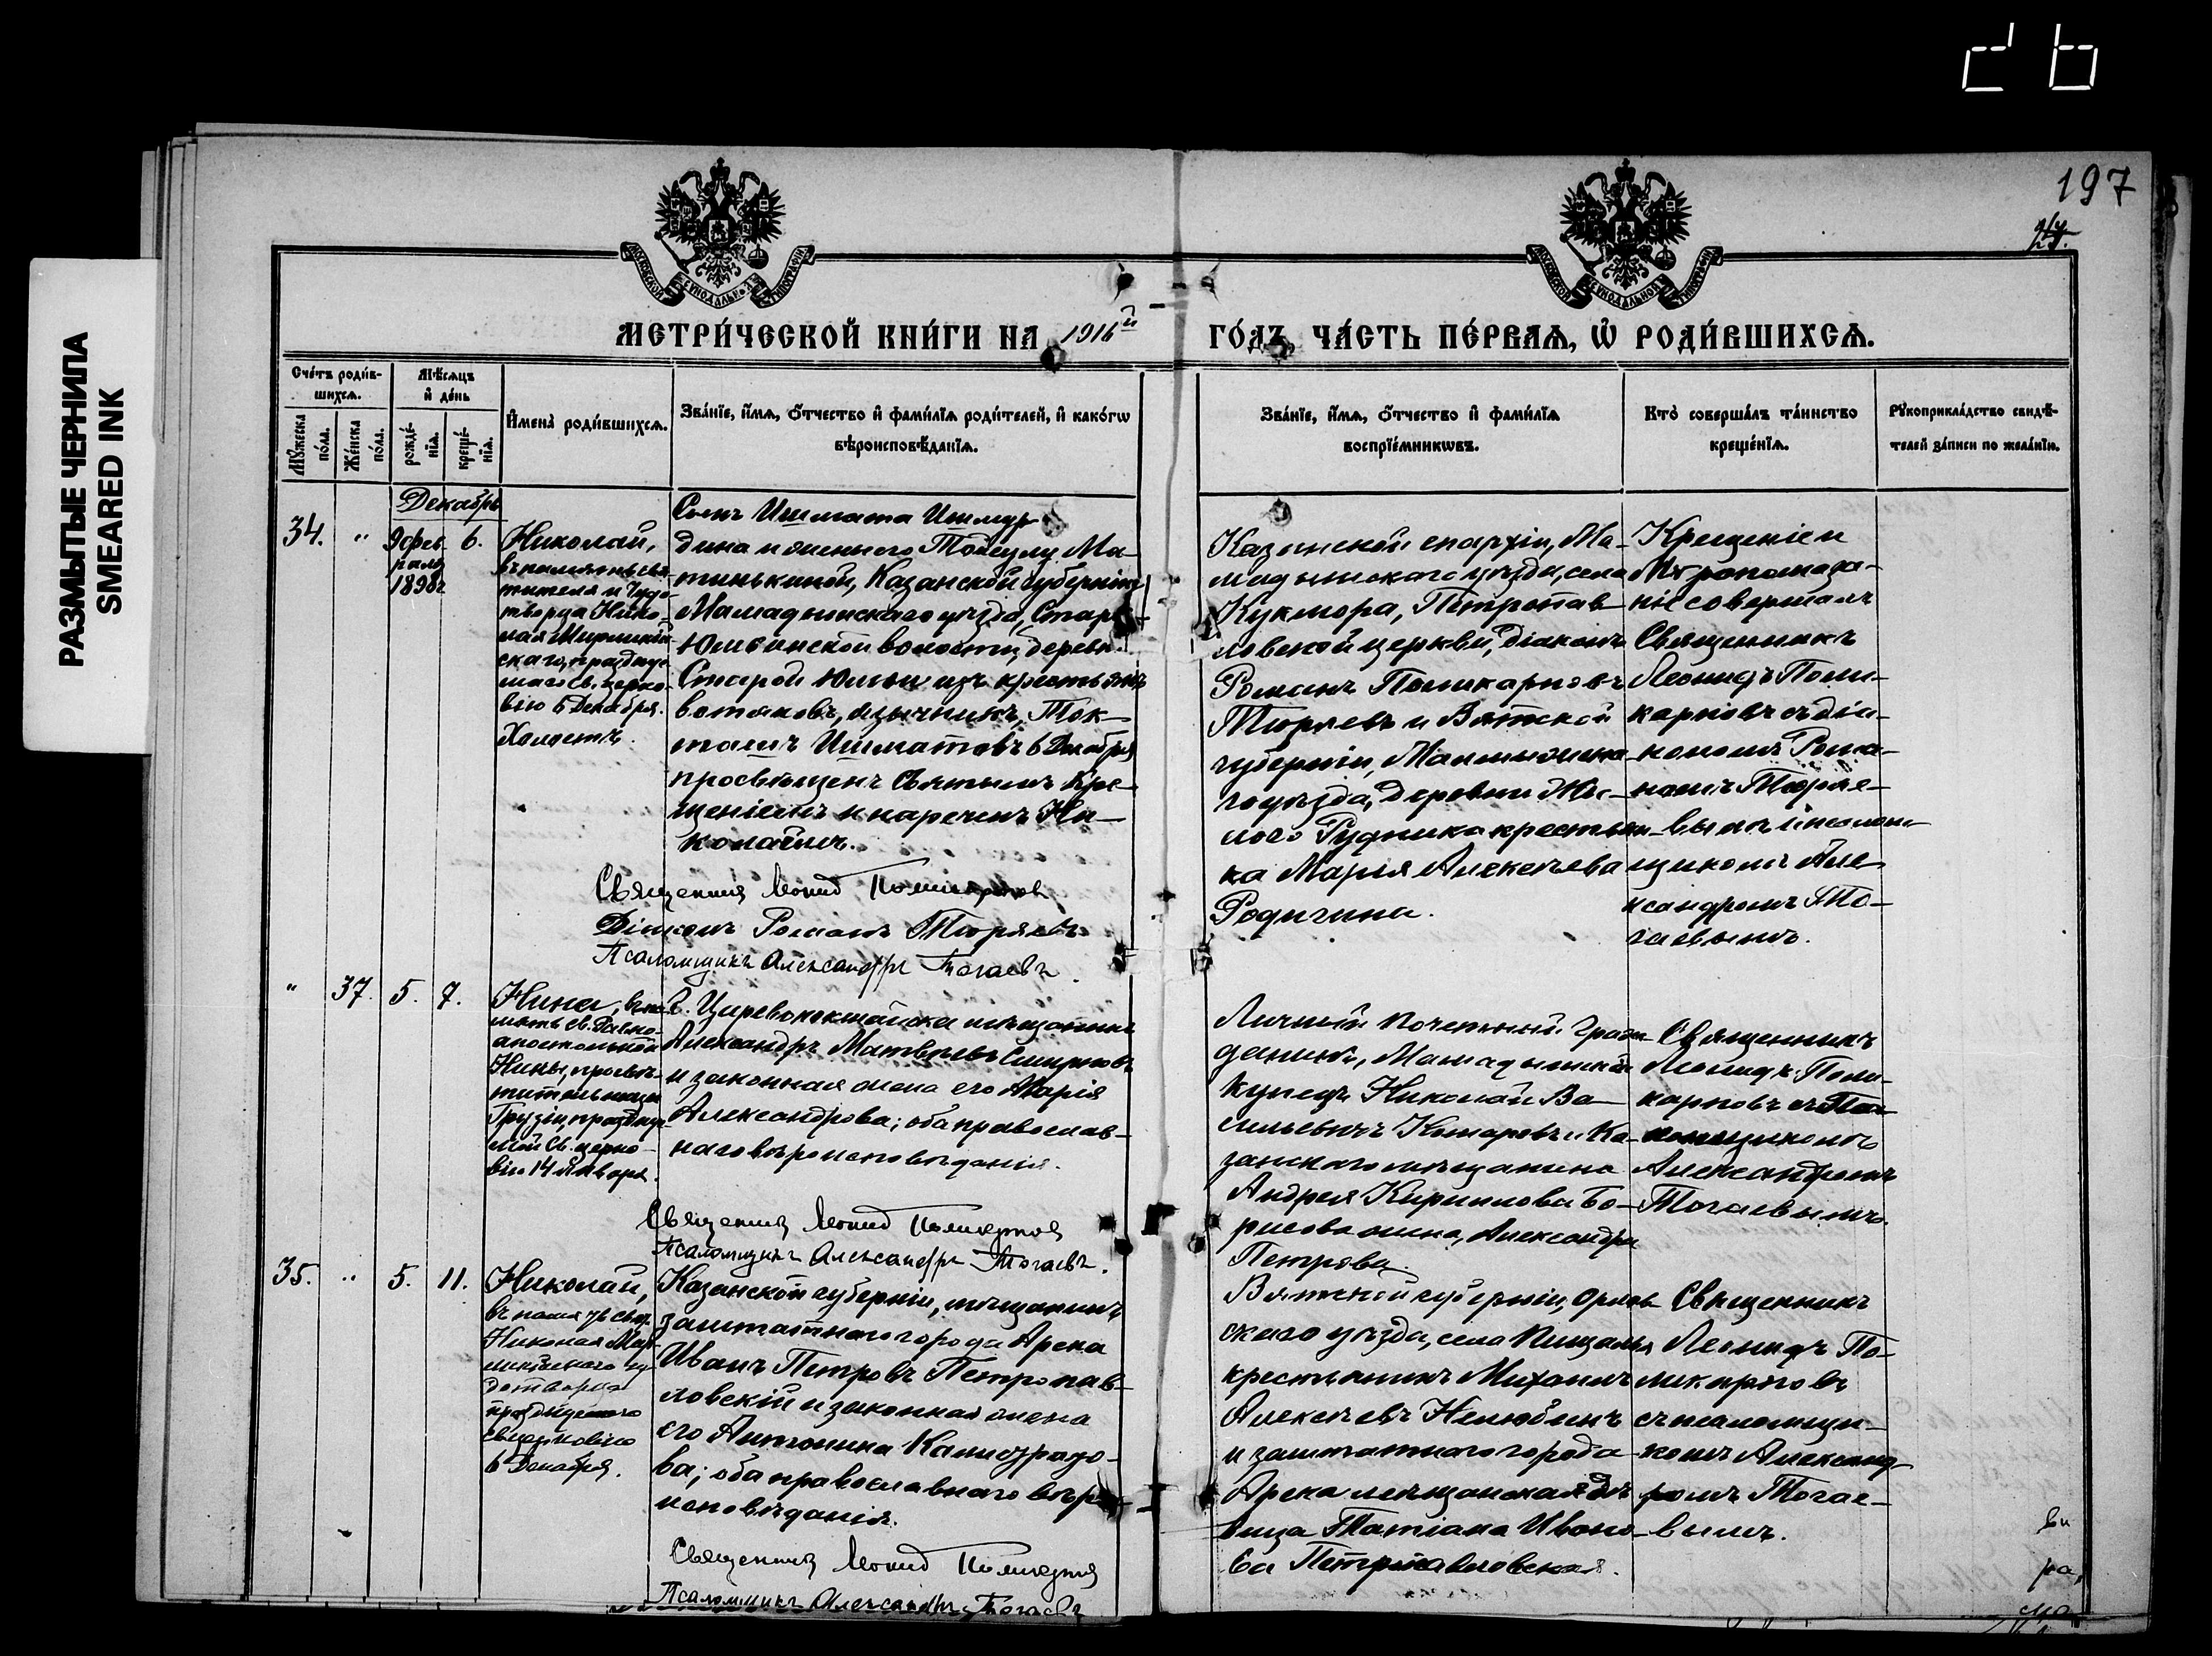 197
РАЗМЫТЫЕ ЧЕРНИЛА
SMEARED INK
МЕТРИ́ЧЕСКОЙ КНИ́ГИ НА 1916й
ГО́ДЪ, ЧА́СТЬ ПЕ́РВАѦ, Ѽ РОДИ́ВШИХСѦ.
Сче́тъ роди́в-
шихсѧ.
Мꙋ́жеска по́ла.
Же́нска по́ла.
Мѣ́сѧцъ
и҆ де́нь
рожде́-
нїѧ.
креще́-
нїѧ.
И҆мена̀ роди́вшихсѧ.
Зва́нїе, и҆́мѧ, ѻ҆́тчество и҆ фами́лїѧ роди́телей, и҆ како́гѡ
вѣроисповѣ́данїѧ.
Зва́нїе, и҆́мѧ, ѻ҆́тчество и҆ фами́лїѧ
воспрїе́мникѡвъ.
Кто̀ соверша́лъ та́инство
креще́нїѧ.
Рꙋкоприкла́дство свидѣ́-
телей за́писи по жела́нїю.
Декабрь
34.
"
9 фев-
раля
1898г
6.
Николай,
въ память свя
тителя и Чудо-
творца Нико-
лая Мирликій-
скаго, праздну-
маго Св. церко-
вію 6 Декабря.
Холостъ.
Сынъ Ишмата Ишмур-
дина и
Казанской губерніи
Мамадышскаго уѣзда, Старо-
Юмьинской волости, деревни
Старой Юмьи изъ крестьянъ
вотяковъ, язычникъ, Ток-
ташъ Ишматовъ 6 Декабря
просвѣщенъ Святымъ Кре-
щеніемъ и нареченъ Ни-
колаемъ.
Священникъ Леонид Поликарпов
Діаконъ Романъ Тюряевъ
Псаломщикъ Александръ Тогаевъ.
Казанской епархіи, Ма-
мадышскаго уѣзда, села
Кукмора, Петропав-
ловской церкви, діаконъ
Романъ Поликарповъ
Тюряевъ и Вятской
губерніи, Малмыжска-
го уѣзда, деревни Жи-
лого Рудника крестьян-
ка Марія Алексѣева
Родыгина.
Крещеніе и
Мѵропомаза-
ніе совершалъ
Священникъ
Леонидъ Поли-
карповъ съ діа-
кономъ Рома-
номъ Тюряе-
вымъ и псалом-
щикомъ Але-
ксандромъ То-
гаевымъ.
"
37.
5.
7.
Нина, въ па-
мять св. Равно-
апостольной
Нины, просвѣ-
тительницы
Грузіи, праздну-
мой Св. церко-
вію 14 Января.
Г. Царевококшайска мѣщанинъ
Александръ Матвѣевъ Смирновъ
и законная жена его Марія
Александрова; оба православ-
наго вѣроисповѣданія.
Священникъ Леонид Поликарпов
Псаломщикъ Александръ Тогаевъ.
Личный почетный граж-
данинъ, Мамадышскій
купецъ Николай Ва-
сильевичъ Комаровъ и Ка-
занскаго мѣщанина
Андрея Кириллова Бо-
рисова жена, Александра
Петрова.
Священникъ
Леонидъ Поли-
карповъ съ Пса-
ломщикомъ
Александромъ
Тогаевымъ.
35.
"
5.
11.
Николай,
въ память свят.
Николая Мир-
ликійскаго чу-
дотворца
празднуемаго
св. церковію
6 Декабря.
Казанской губерніи, мѣщанинъ
заштатнаго города Арска
Иванъ Петровъ Петропав-
ловскій и законная жена
его Антонина
ва; оба православнаго вѣро-
исповѣданія.
Священникъ Леонид Поликарпов
Псаломщикъ Александръ Тогаевъ
Вятской губерніи, Орлов-
скаго уѣзда, села Пищалья
крестьянинъ Михаилъ
Алексѣевъ Нелюбинъ
и заштатнаго города
Арска мѣщанская дѣ-
вица Татіана Ивано-
ва Петропавловская.
Священникъ
Леонидъ По-
ликарповъ
съ псаломщи-
комъ Александ-
ромъ Тогае-
вымъ.